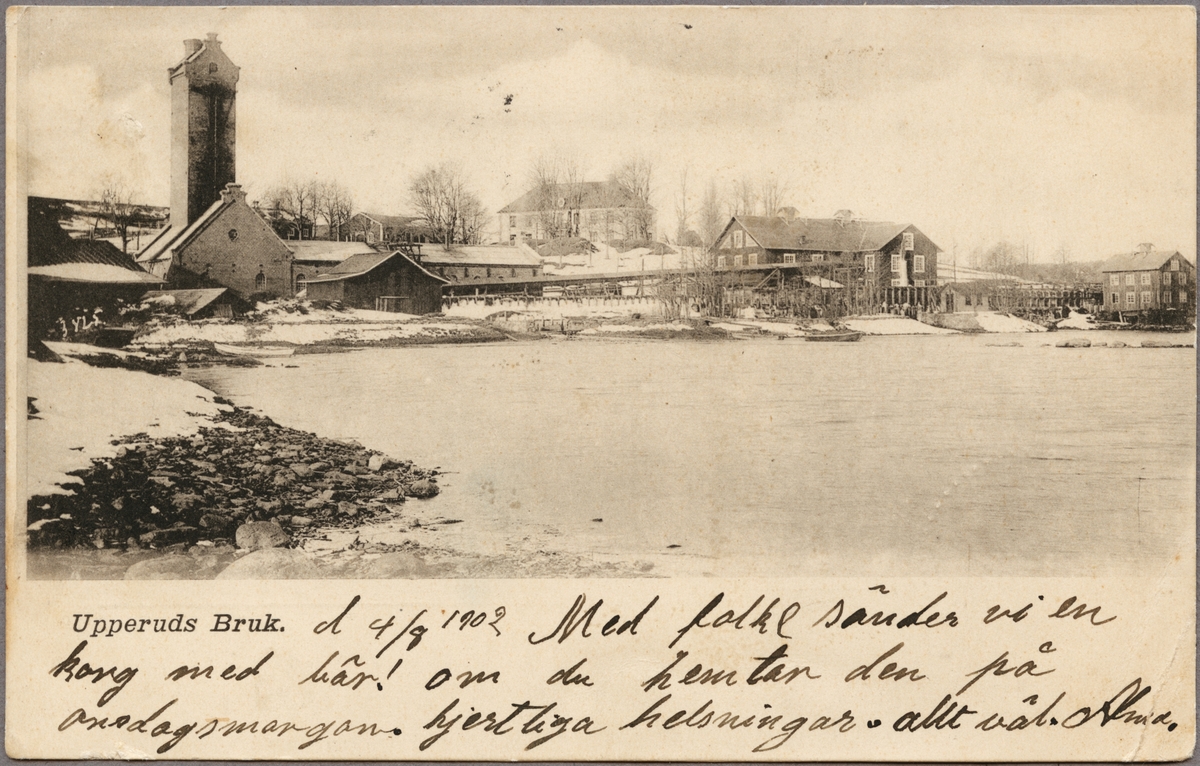 3425
Upperuds Bruk. d 4/8 1902 Med folke sänder vi en
korg med bär! om du hemtar den på
onsdagsmorgon. hjertliga helsningar. allt väl. Alma.